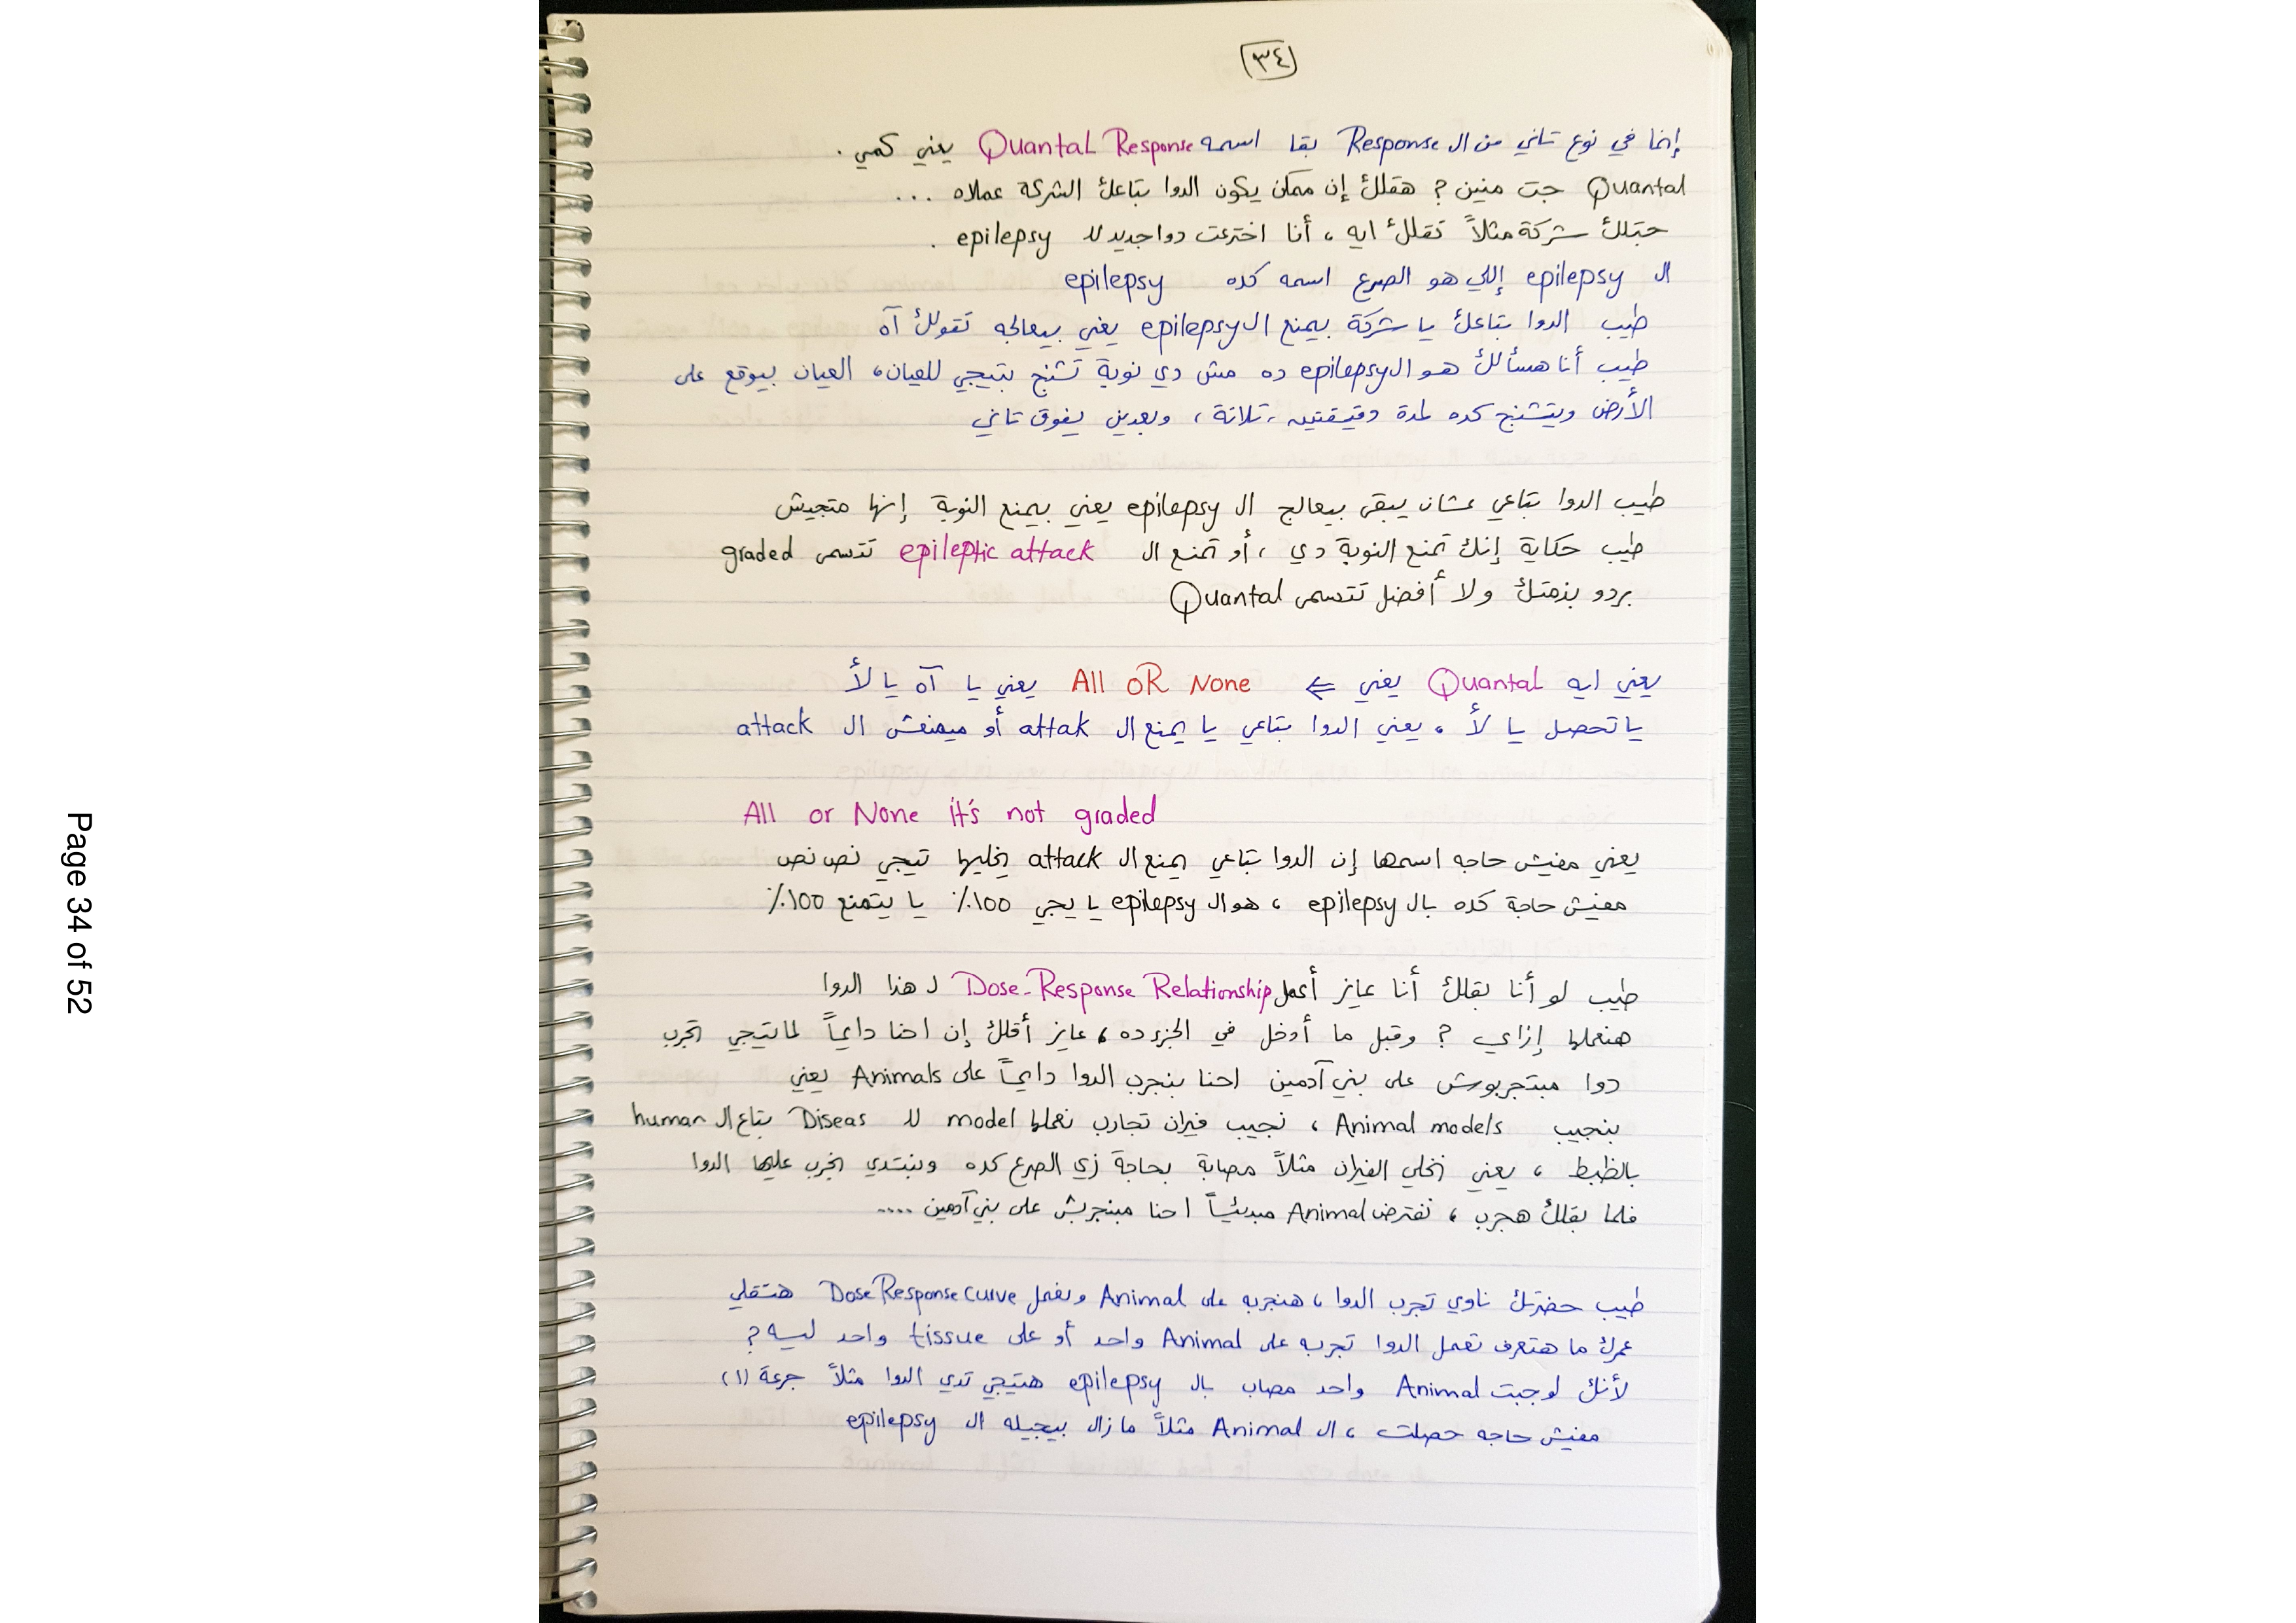 ٣٤
إنما في نوع تاني من ال Response بقا اسمه Quantal Response يعني كمي .
Quantal جت منين ? هقلك إن ممكن يكون الدوا بتاعك الشركة عملاه ...
جتلك شركة مثلاً تقلك ايه ، أنا اخترعت دوا جديد لل epilepsy .
ال epilepsy إللي هو الصرع اسمه كده epilepsy
طيب الدوا بتاعك يا شركة بيمنع ال epilepsy يعني بيعالجه تقولك آه
طيب أنا هسألك هو ال epilepsy ده مش دي نوبة تشنج بتيجي للعيان ، العيان بيوقع على
الأرض ويتشنج كده لمدة دقيقتين ، تلاتة ، وبعدين يفوق تاني
طيب الدوا بتاعي عشان يبقى بيعالج ال epilepsy يعني بيمنع النوبة إنها متجيش
طيب حكاية إنك تمنع النوبة دي ، أو تمنع ال epileptic attack تتسمى graded
بردو بذمتك ولا أفضل تتسمى Quantal
يعني ايه Quantal يعني ⇐ All OR None يعني يا آه يا لأ
يا تحصل يا لأ ، يعني الدوا بتاعي يا يمنع ال attak أو ميمنعش ال attack
All or None it's not graded
يعني مفيش حاجه اسمها إن الدوا بتاعي يمنع ال attack يخليها تيجي نص نص
مفيش حاجة كده بال epilepsy ، هو ال epilepsy يا يجي 100٪ يا يتمنع 100٪
طيب لو أنا بقلك أنا عايز أعمل Dose-Response Relationship ل هذا الدوا
هنعملها إزاي ? وقبل ما أدخل في الجزء ده ، عايز أقلك إن احنا دايماً لما تيجي تجرب
دوا مبتجربوش على بني آدمين احنا بنجرب الدوا دايماً على Animals يعني
بنجيب Animal models ، نجيب فيران تجارب نعملها model لل Diseas بتاع ال human
بالظبط ، يعني نخلي الفيران مثلاً مصابة بحاجة زي الصرع كده ونبتدي نجرب عليها الدوا
فلما بقلك هجرب ، نفترض Animal مبدئياً احنا مبنجربش على بني آدمين ....
طيب حضرتك ناوي تجرب الدوا ، هنجربه على Animal ونعمل Dose Response curve هتقلي
عمرك ما هتعرف تعمل الدوا تجربه على Animal واحد أو على tissue واحد ليه ?
لأنك لو جبت Animal واحد مصاب بال epilepsy هتيجي تدي الدوا مثلاً جرعة (١)
مفيش حاجه حصلت ، ال Animal مثلاً مازال بيجيله ال epilepsy
Page 34 of 52